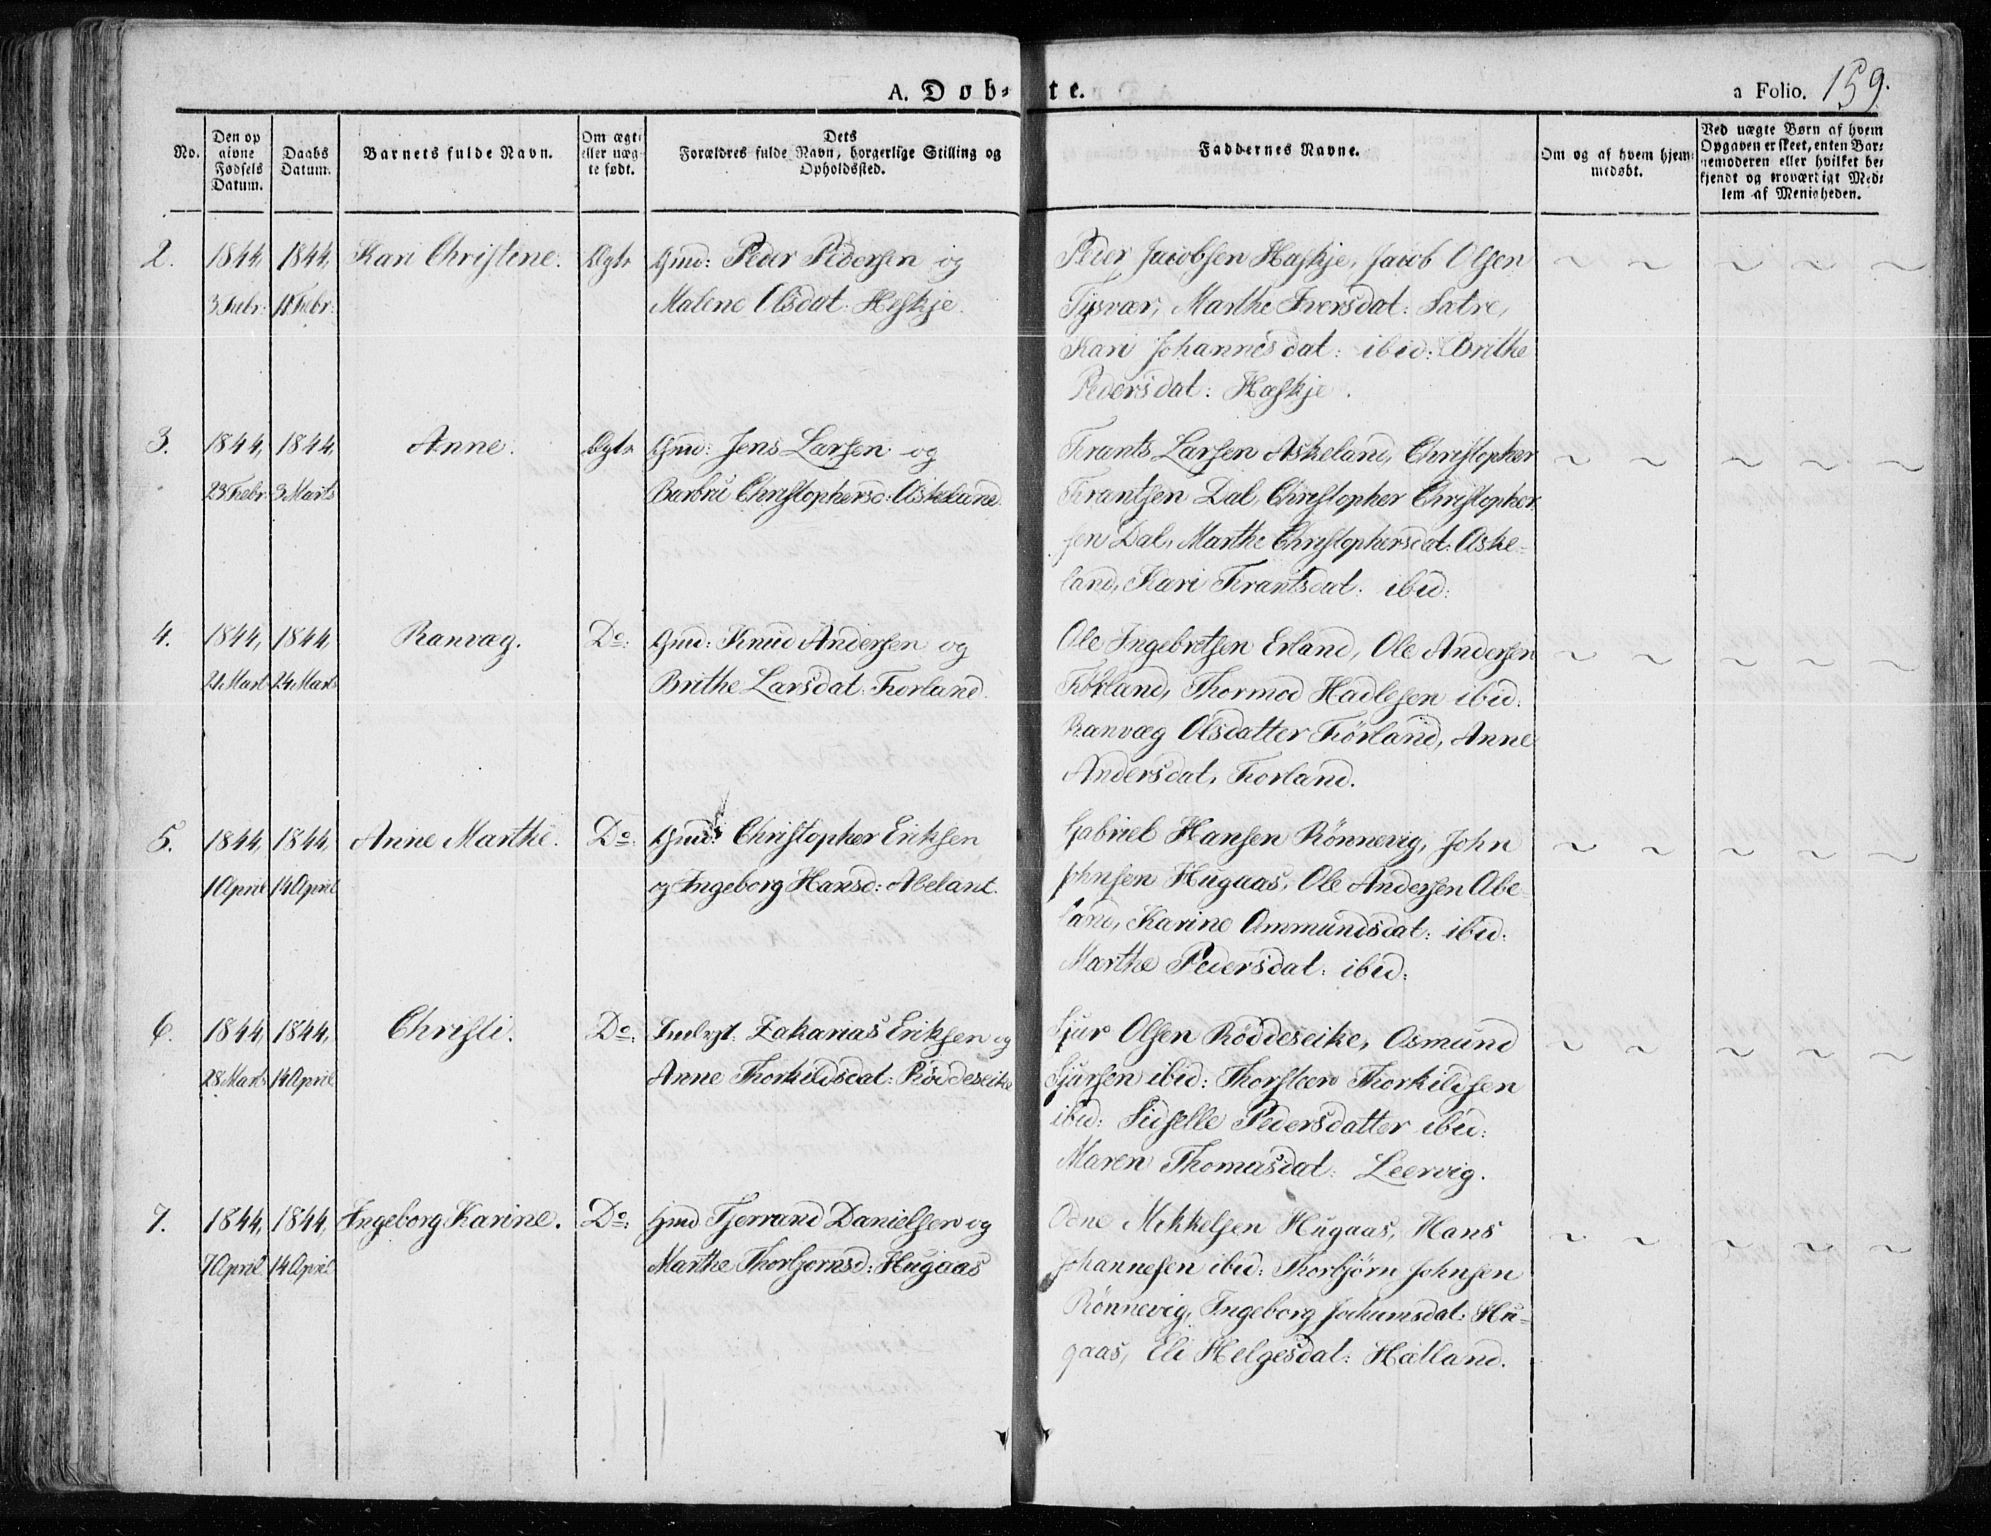 A. Døb-	te.	a Folio. 159.
No.	Den op	Daabs	Barnets fulde Navn.	Om ægt-	Dets	Faddernes Navne.	Om og af hvem hjem-	Ved uægte Børn af hvem
givne	Datum.	eller uæg-	Forældres fulde Navn, borgerlige Stilling og	medøbt.	Opgaven er skeet, enten Bar-
Fødsels	te født.	Opholdssted.	nemoderen eller hvilket be-
Datum.	kjendt og troværdigt Med-
lem af Menigheden.
2.	1844,	1844,	Kari Christine.	Ægte	Gmd: Peder Pedersen og	Peder Jacobsen Haskje, Jacob Olsen
3 Febr:	18 Febr:	Malene Olsdat: Heskje.	Tysvær, Marthe Iversdat: Satre,
Kari Johannesdat: ibid: Brithe
Pedersdat: Haskje.
3.	1844,	1844,	Anne.	Ægte	Gmd: Jens Larsen og	Frants Larsen Askeland, Christopher
23 Febr:	3 Marts	Barbru Christophersd: Askeland.	Frantsen Dal, Christopher Christopher
sen Dal, Marthe Christophersdat: Aske-
land, Kari Frantsdat: ibid:
4.	1844,	1844,	Ranvæg.	Do:	Gmd: Knud Andersen og	Ole Ingebretsen Erland, Ole Andersen
21 Mart	24 Marts	Brithe Larsdat: Førland.	Førland, Thormod Hadlesen ibid:
Ranvæg Olsdatter Førland, Anne
Andersdat, Førland.
5.	1844,	1844,	Anne Marthe.	Do:	Gmd: Christopher Eriksen	Gabriel Hansen Rønnevig, John
1 April	14 April	og Ingeborg Hansd: Abeland.	Johnsen Hugaas, Ole Andersen Abe-
land, Karine Ommundsdat: ibid:
Marthe Pedersdat: ibid:
6.	1844,	1844,	Christi.	Do:	Indrst: Zakarias Eriksen og	Sjur Olsen Røddeseike, Osmund
28 Marts	14 April	Anne Thorkildsdat: Røddeseike	Sjursen ibid: Thorsteen Thorkildsen
ibid: Sidselle Pedersdatter ibid:
Maren Thomasdat: Leervig.
7.	1844,	1844,	Ingeborg Karine.	Do:	Gmd Tjerrand Danielsen og	Odne Mikkelsen Hugaas, Hans
7 April	14 April	Marthe Thorbjørnsd: Hugaas	Johannesen ibid: Thorbjørn Johnsen
Rønnevig, Ingeborg Jochumsdat: Hu-
gaas, Eli Helgesdat: Hatland.